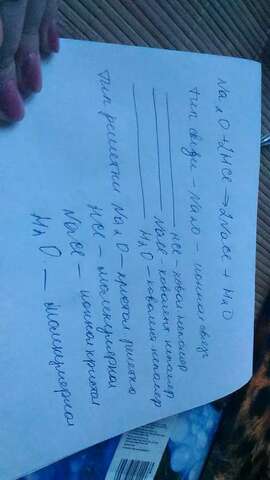 Na2O + 2HCl → 2NaCl + H2O
Тип связи – Na2O – ионная связь
HCl – ковал неполяр
NaCl – ковалент неполяр
H2O – ковалент неполяр
Тип решетки Na2O – кристал. решетка
HCl – молекулярная
NaCl – ионная кристал
H2O – молекулярная